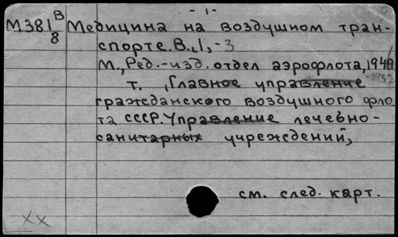 - 1 -
М381 В/8 Медицина на воздушном тран-
спорте.В.,1,-3
М.,Ред.-изд.отдел аэрофлота,1948
-1952
т. ,Главное управление
гражданского воздушного фло
та СССР.Управление лечебно-
санитарных учреждений,
см. след. карт.
XX